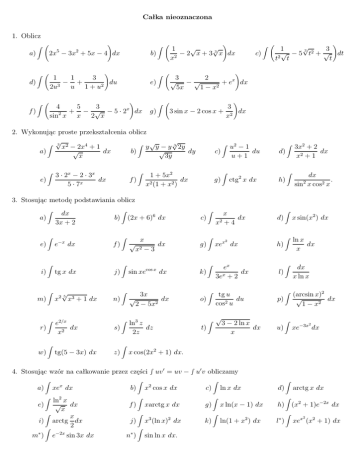 Całka nieoznaczona
1. Oblicz
a) ∫(2x⁵ − 3x² + 5x − 4)dx b) ∫(1/x² − 2√x + 3∛x)dx c) ∫(1/(t²√t) − 5∛t² + 3/√t)dt
d) ∫(1/2u³ − 1/u + 3/(1 + u²))du e) ∫(3/√5x − 2/√(1 − x²) + eˣ)dx
f) ∫(4/sin² x + 5/x − 3/2√x − 5 · 2ˣ)dx g) ∫(3 sin x − 2 cos x + 3/x²)dx
2. Wykonując proste przekształcenia oblicz
a) ∫ (∛x² − 2x⁴ + 1)/√x dx b) ∫ (y√y − y∛2y)/√3y dy c) ∫ (u² − 1)/(u + 1) du d) ∫ (3x² + 2)/(x² + 1) dx
e) ∫ (3 · 2ˣ − 2 · 3ˣ)/(5 · 7ˣ) dx f) ∫ (1 + 5x²)/(x²(1 + x²)) dx g) ∫ ctg² x dx h) ∫ dx/(sin² x cos² x).
3. Stosując metodę podstawiania oblicz
a) ∫ dx/(3x + 2) b) ∫(2x + 6)⁸ dx c) ∫ x/(x² + 4) dx d) ∫ x sin(x²) dx
e) ∫ e⁻ˣ dx f) ∫ x/√(x² − 3) dx g) ∫ xe^(x²) dx h) ∫ ln x/x dx
i) ∫ tg x dx j) ∫ sin xe^(cos x) dx k) ∫ eˣ/(3eˣ + 2) dx l) ∫ dx/(x ln x)
m) ∫ x²∛(x³ + 1) dx n) ∫ 3x/√(2 − 5x²) dx o) ∫ tg u/cos² u du p) ∫ (arcsin x)²/√(1 − x²) dx
r) ∫ e^(2/x)/x² dx s) ∫ ln³ z/2z dz t) ∫ √(3 − 2 ln x)/x dx u) ∫ xe^(−3x²)dx
w) ∫ tg(5 − 3x) dx z) ∫ x cos(2x² + 1) dx.
4. Stosując wzór na całkowanie przez części ∫ uv′ = uv − ∫ u′v obliczamy
a) ∫ xeˣ dx b) ∫ x² cos x dx c) ∫ ln x dx d) ∫ arctg x dx
e) ∫ ln² x/√x dx f) ∫ xarctg x dx g) ∫ x ln(x − 1) dx h) ∫(x² + 1)e⁻²ˣ dx
i) ∫ arctg x/2 dx j) ∫ x³(ln x)² dx k) ∫ ln(1 + x²) dx l*) ∫ xe^(x²)(x² + 1) dx
m*) ∫ e⁻²ˣ sin 3x dx n*) ∫ sin ln x dx.